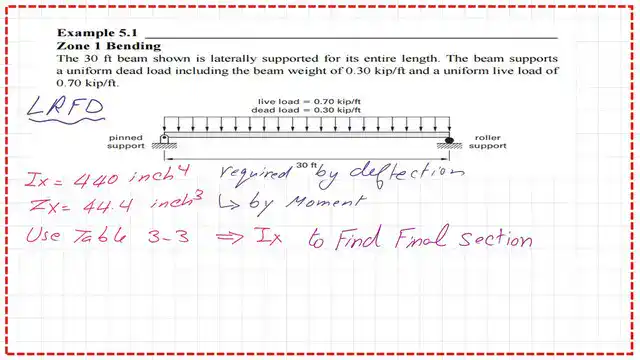 Example 5.1
Zone 1 Bending
The 30 ft beam shown is laterally supported for its entire length. The beam supports
a uniform dead load including the beam weight of 0.30 kip/ft and a uniform live load of
0.70 kip/ft.
LRFD
live load = 0.70 kip/ft
dead load = 0.30 kip/ft
pinned
support
roller
support
30 ft
Ix = 440 inch⁴ required by deflection
Zx = 44.4 inch³ ↳ by Moment
Use Table 3-3 ⇒ Ix to Find Final Section